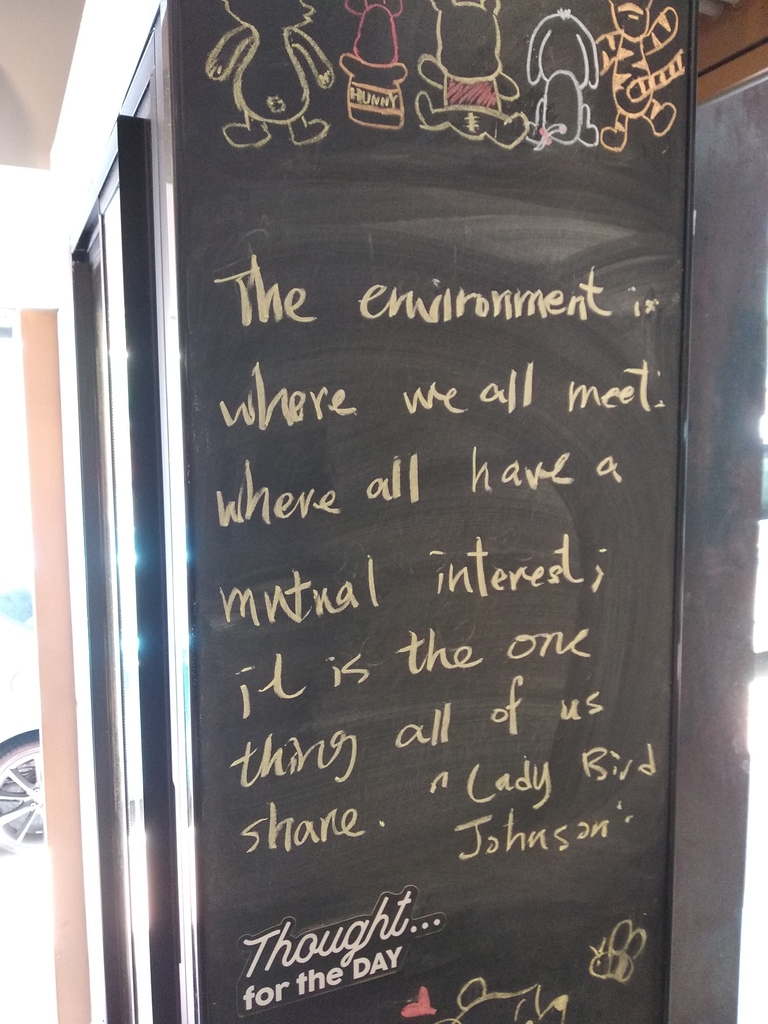 HUNNY
The environment is
where we all meet:
where all have a
mutual interest;
it is the one
thing all of us
share. "Lady Bird
Johnson"
Thought...
for the DAY